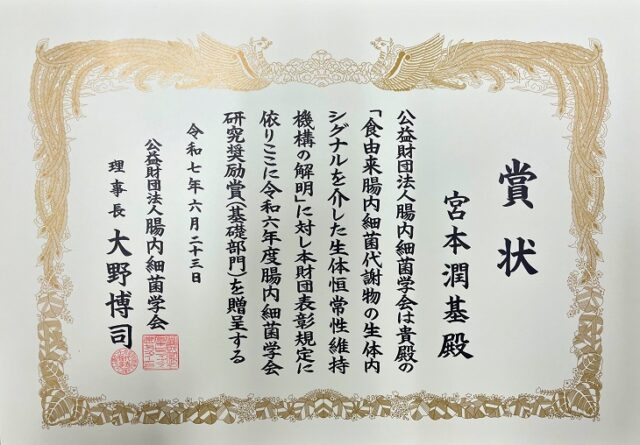 賞状
宮本潤基殿
公益財団法人腸内細菌学会は貴殿の
「食由来腸内細菌代謝物の生体内
シグナルを介した生体恒常性維持
機構の解明」に対し本財団表彰規定に
依りここに令和六年度腸内細菌学会
研究奨励賞(基礎部門)を贈呈する
令和七年六月二十三日
公益財団法人腸内細菌学会
理事長 大野博司